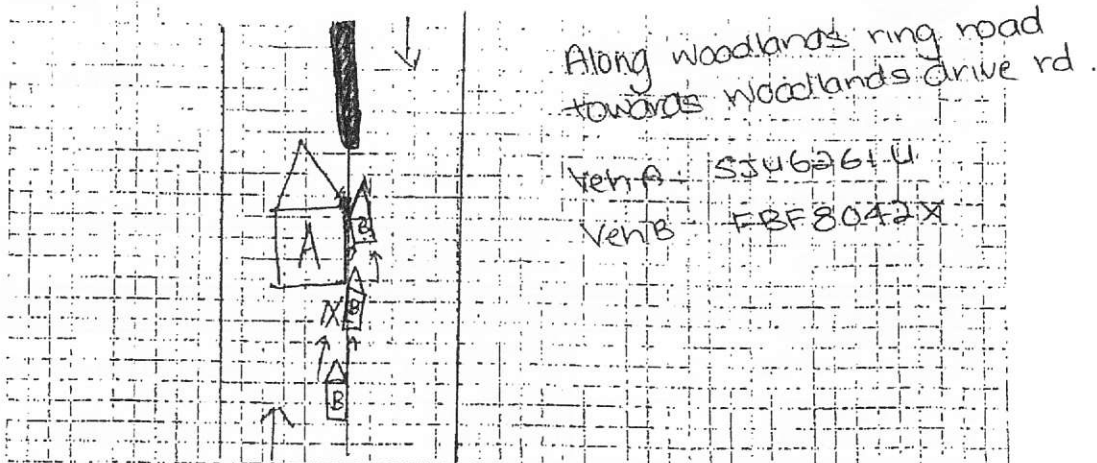 Along woodlands ring road
towards woodlands drive rd.
Veh A SJU6261U
Veh B FBF8042X
A
B
B
X
B